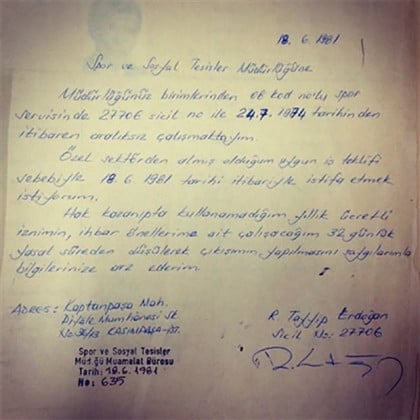 18.6.1981
Spor ve Sosyal Tesisler Müdürlüğüne
Müdürlüğünüz birimlerinden 06 kod no'lu spor
servisinde 27706 sicil no ile 24.7.1974 tarihinden
itibaren aralıksız çalışmaktayım.
Özel sektörden almış olduğum uygun iş teklifi
sebebiyle 18.6.1981 tarihi itibariyle istifa etmek
istiyorum.
Hak kazanıpta kullanamadığım yıllık ücretli
iznimin, ihbar önellerime ait çalışacağım 32 günlük
yasal süreden düşülerek çıkışımın yapılmasını saygılarımla
bilgilerinize arz ederim.
ADRES: Kaptanpaşa Mah.
R. Tayyip Erdoğan
Sicil No: 27706
KASIMPAŞA-İST.
Spor ve Sosyal Tesisler
Müd.ğü Muamelat Bürosu
Tarih: 18.6.1981
No: 635